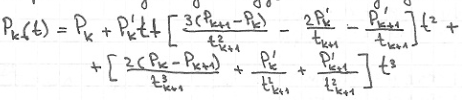 P_k(t) = P_k + P'_k t + [ 3(P_{k+1} - P_k) / t²_{k+1} - 2P'_k / t_{k+1} - P'_{k+1} / t_{k+1} ] t² +
+ [ 2(P_k - P_{k+1}) / t³_{k+1} + P'_k / t²_{k+1} + P'_{k+1} / t²_{k+1} ] t³